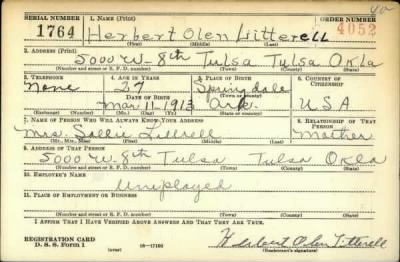 SERIAL NUMBER 1. NAME (Print) ORDER NUMBER
1764 Herbert Olen Litterell 4052
(First) (Middle) (Last)
2. ADDRESS (Print)
5000 W-8th Tulsa Tulsa Okla
(Number and street or R. F. D. number) (Town) (County) (State)
3. TELEPHONE 4. AGE IN YEARS 5. PLACE OF BIRTH 6. COUNTRY OF CITIZENSHIP
None 27 Springdale
(Town or county)
DATE OF BIRTH
Mar 11-1913 Ark. USA
(Exchange) (Number) (Mo.) (Day) (Yr.) (State or country)
7. NAME OF PERSON WHO WILL ALWAYS KNOW YOUR ADDRESS 8. RELATIONSHIP OF THAT PERSON
Mrs. Sallie Littrell Mother
(Mr., Mrs., Miss) (First) (Middle) (Last)
9. ADDRESS OF THAT PERSON
5000 W. 8th Tulsa Tulsa Okla
(Number and street or R. F. D. number) (Town) (County) (State)
10. EMPLOYER'S NAME
Unemployed
11. PLACE OF EMPLOYMENT OR BUSINESS
(Number and street or R. F. D. number) (Town) (County) (State)
I AFFIRM THAT I HAVE VERIFIED ABOVE ANSWERS AND THAT THEY ARE TRUE.
REGISTRATION CARD
D. S. S. Form 1 (over) 16-17105 Herbert Olen Litterell
(Registrant's signature)